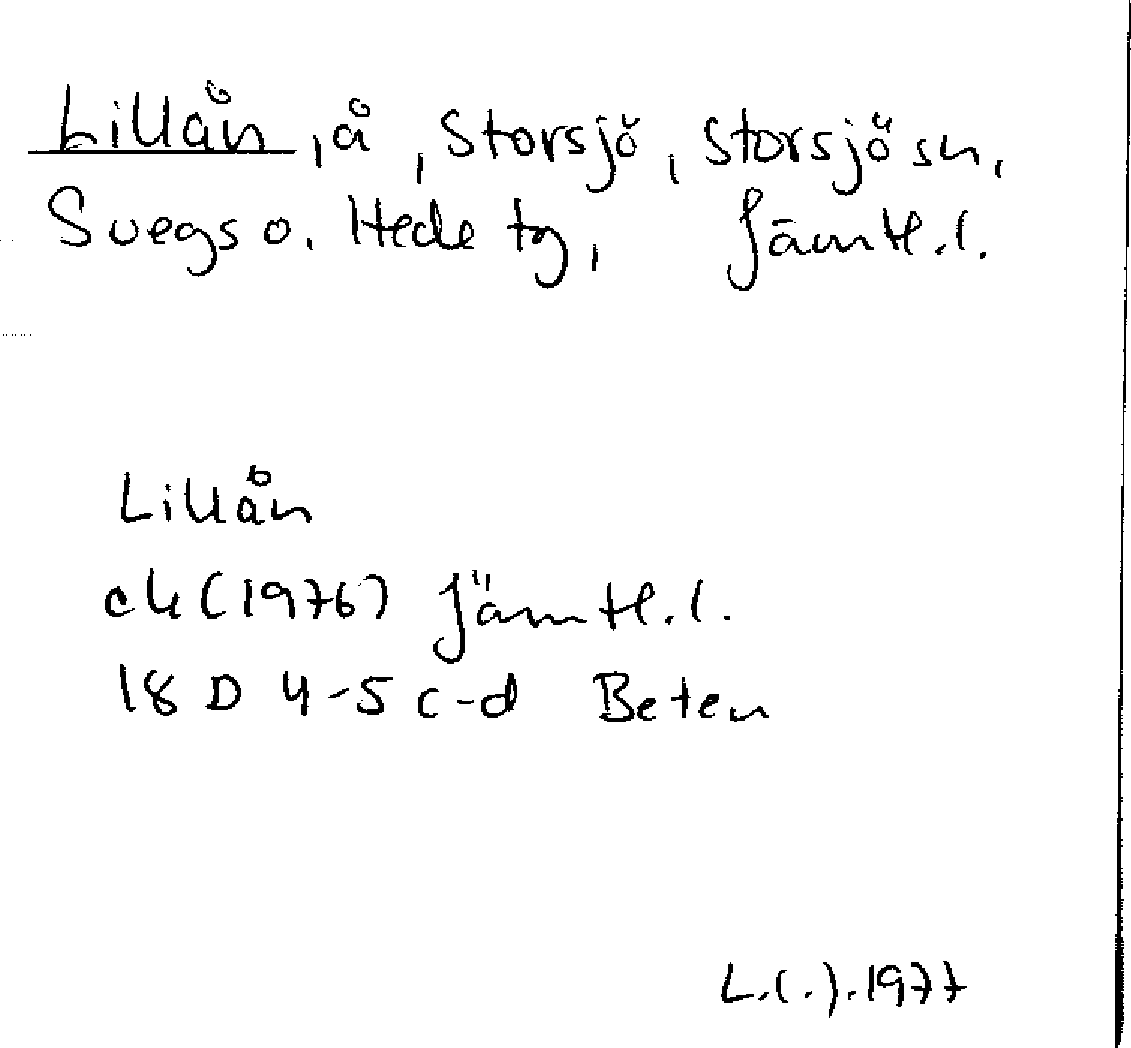 Lillån, å, Storsjö, Storsjö sn,
Svegs o. Hede tg, Jämtl.l.
Lillån
ek (1976) Jämtl.l.
18 D 4-5 c-d Beten
L.(.).1977